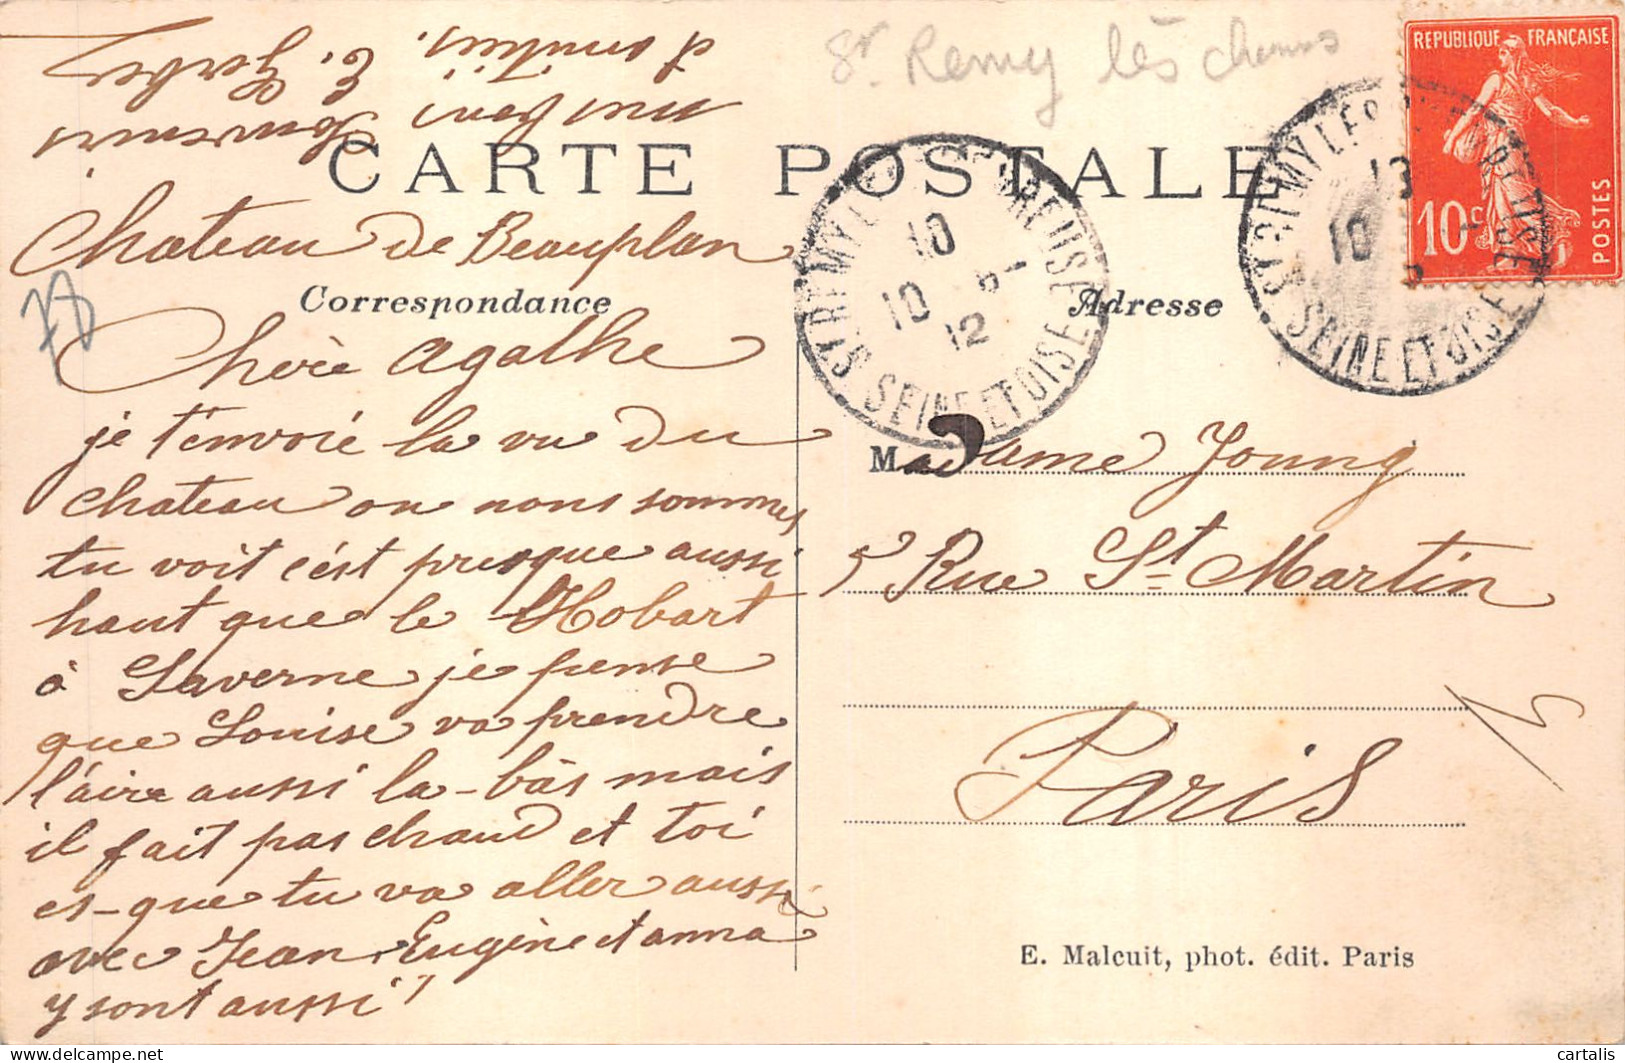 St Remy lès chevreuse
RÉPUBLIQUE FRANÇAISE
10c
POSTES
CARTE POSTALE
ST REMY LES CHEVREUSE
10
10 5-1
12
SEINE ET OISE
ST REMY LES CHEVREUSE
10
SEINE ET OISE
Correspondance
Adresse
78
Chateau de Beauplan
Chère Agathe
je t'envoié la vu du
chateau ou nous sommes
tu voit c'ést presque aussi
haut que le Hobart
à Saverne je pense
que Louise va prendre
l'aire aussi la-bàs mais
il fait pas chaud et toi
es-que tu va aller aussi
avec Jean, Eugène et anna
y sont aussi
meilleurs souvenirs
d'amitiés.
Madame Joung
5 Rue St Martin
Paris
E. Malcuit, phot. édit. Paris
cartalis